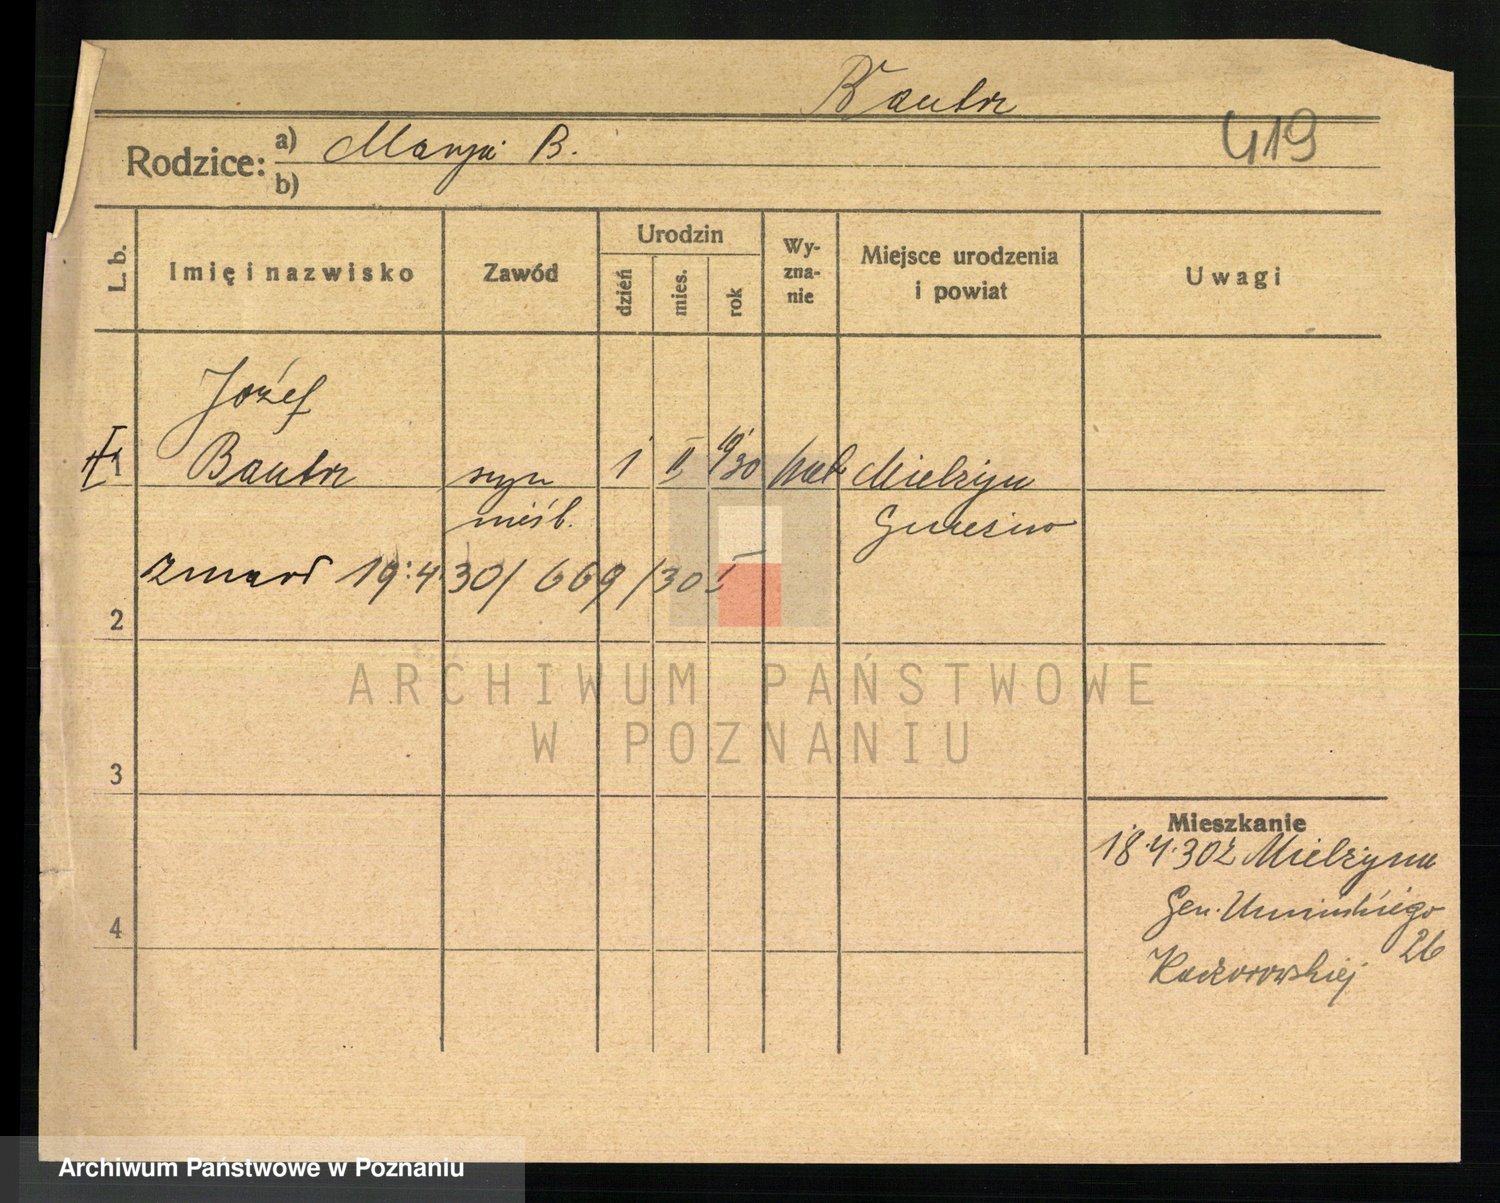 Bautz
419
Rodzice: a) Marja B.
b)
L. b. Imię i nazwisko Zawód Urodzin dzień mies. rok Wyznanie Miejsce urodzenia i powiat Uwagi
Józef
1 Bautz syn 1 II 1930 kat Mielżyn
nieśl. Gniezno
zmarł 19.4.30/ 669/30 I
2
3
4
Mieszkanie
18.4.30 z Mielżyna
Gen. Umińskiego
26
Kaczorowskiej
ARCHIWUM PAŃSTWOWE
W POZNANIU
Archiwum Państwowe w Poznaniu